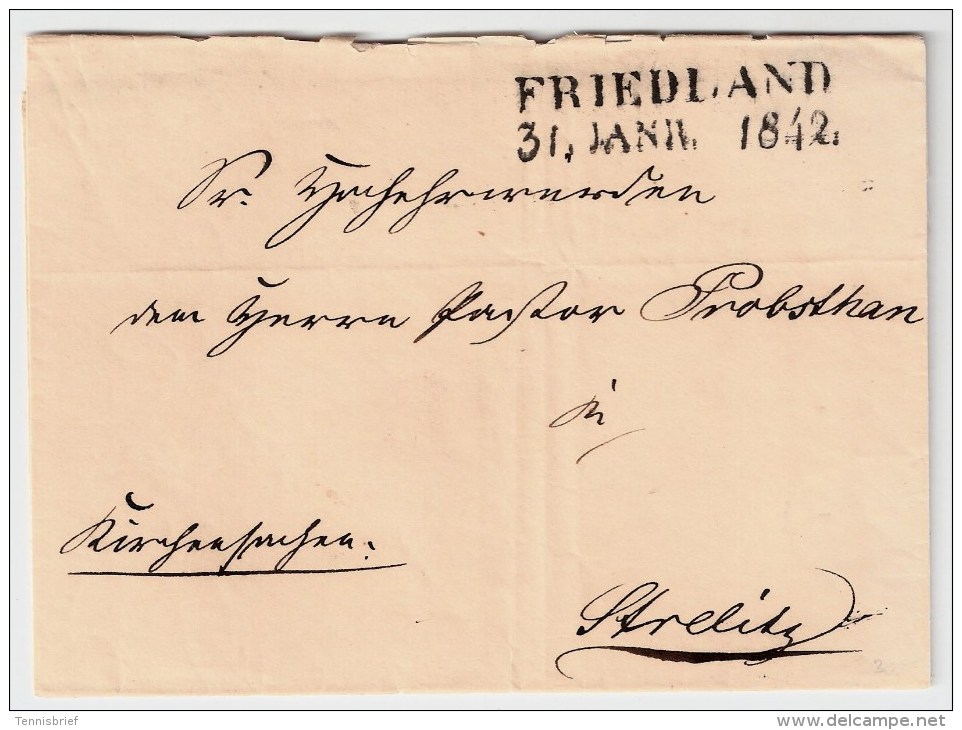 FRIEDLAND
31, JANR. 1842.
Sr. Hochehrwürden
dem Herrn Pastor Probsthan
in
Kirchensachen.
Strelitz
2
Tennisbrief
www.delcampe.net